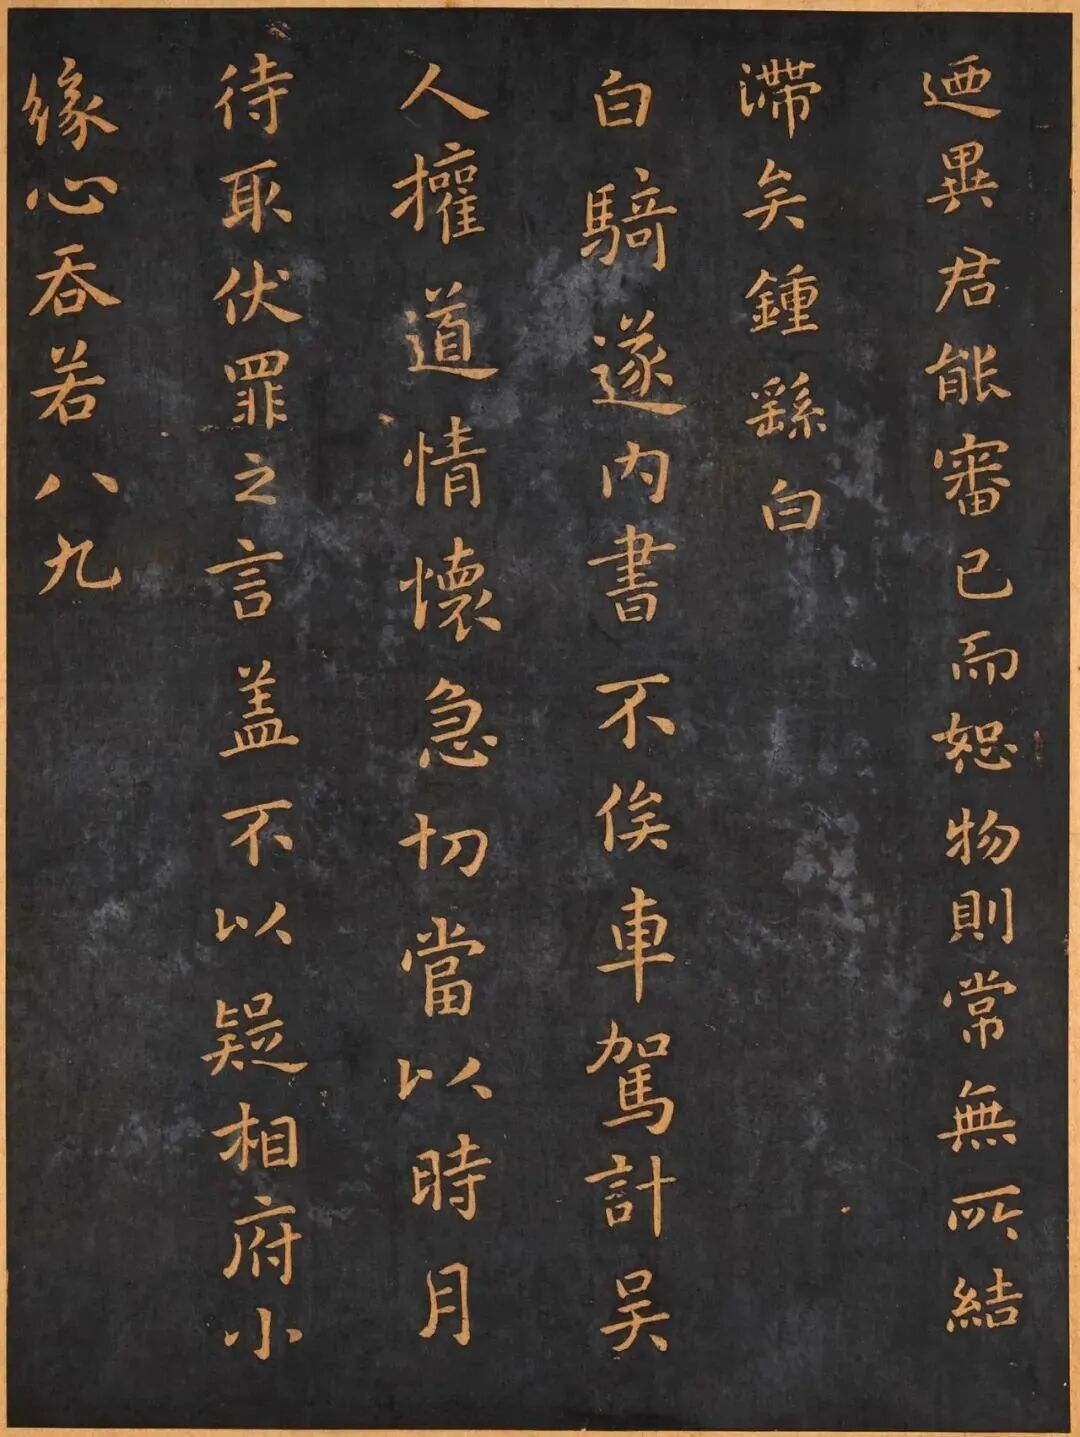 迺異君能審己而恕物則常無所結
滯矣鍾繇白
白騎遂內書不俟車駕計吴
人權道情懷急切當以時月
待取伏罪之言盖不以疑相府小
緣心吞若八九